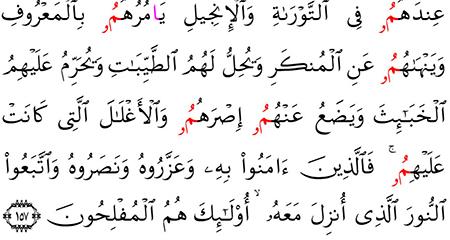 عِندَهُمُۥ فِى ٱلتَّوْرَىٰةِ وَٱلْإِنجِيلِ يَامُرُهُمُۥ بِٱلْمَعْرُوفِ
وَيَنْهَىٰهُمُۥ عَنِ ٱلْمُنكَرِ وَيُحِلُّ لَهُمُ ٱلطَّيِّبَـٰتِ وَيُحَرِّمُ عَلَيْهِمُ
ٱلْخَبَـٰٓئِثَ وَيَضَعُ عَنْهُمُۥ إِصْرَهُمُۥ وَٱلْأَغْلَـٰلَ ٱلَّتِى كَانَتْ
عَلَيْهِمُۥ ۚ فَٱلَّذِينَ ءَامَنُوا۟ بِهِۦ وَعَزَّرُوهُ وَنَصَرُوهُ وَٱتَّبَعُوا۟
ٱلنُّورَ ٱلَّذِىٓ أُنزِلَ مَعَهُۥٓ ۙ أُو۟لَـٰٓئِكَ هُمُ ٱلْمُفْلِحُونَ ١٥٧